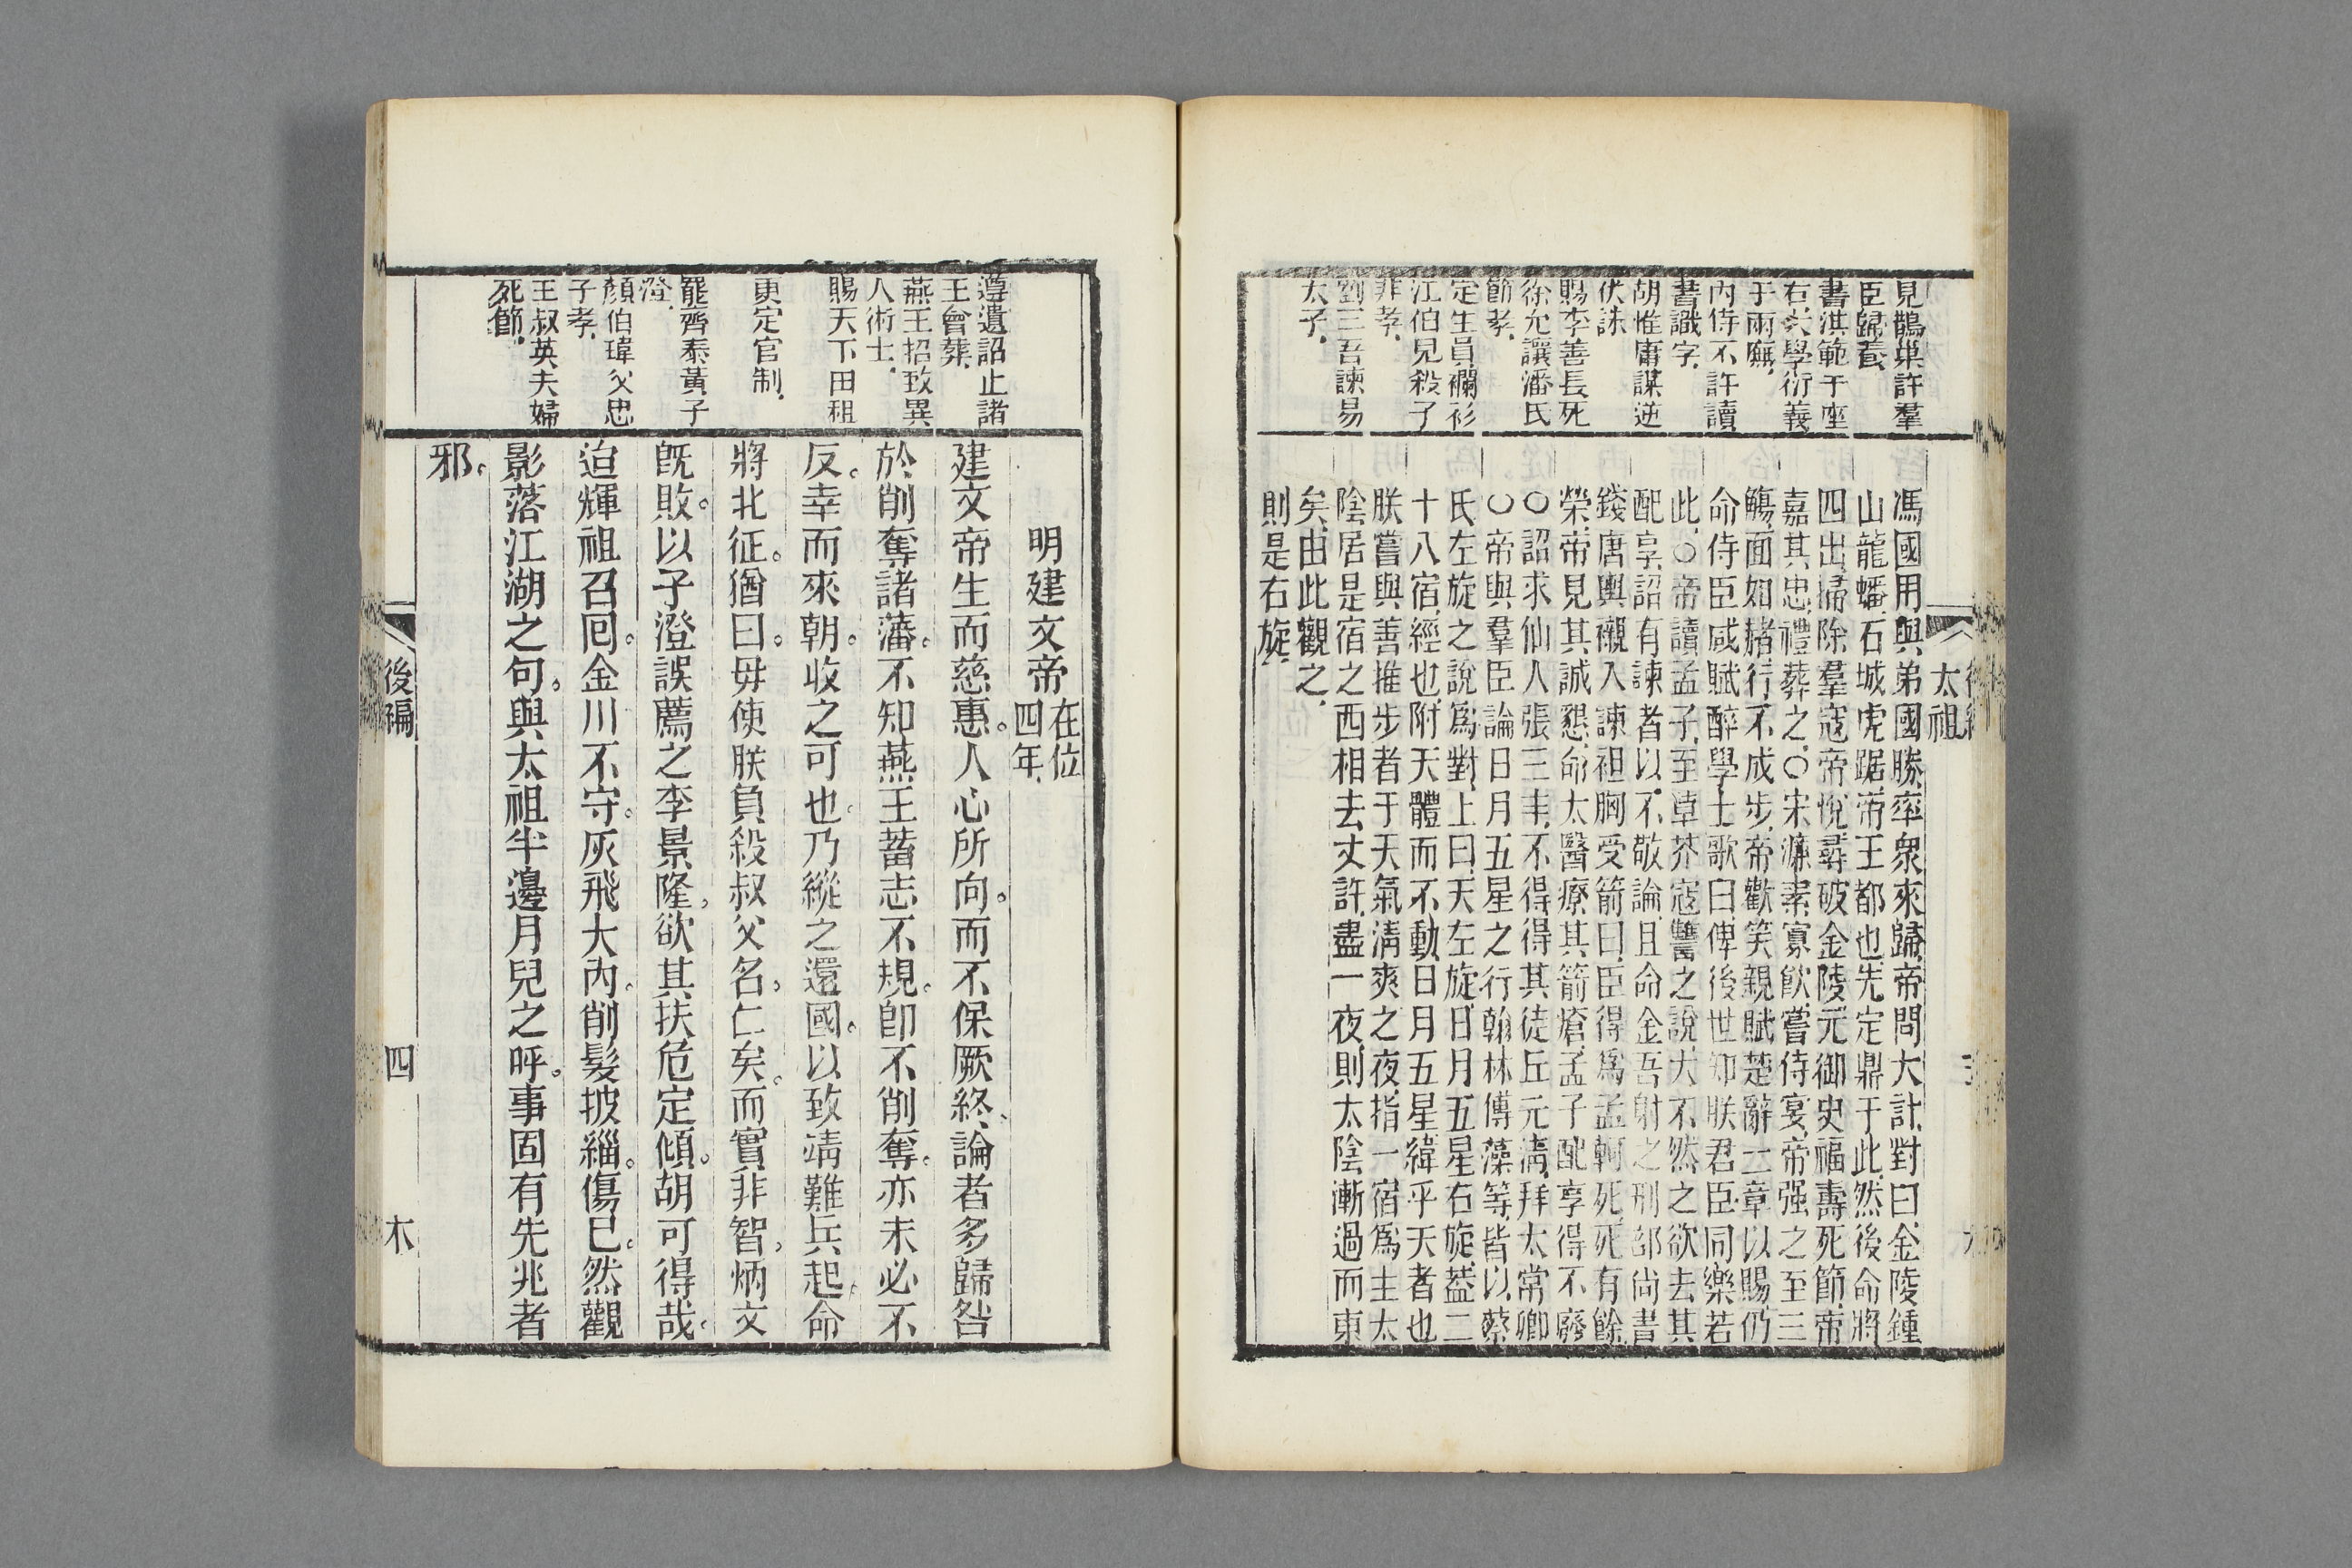 見鵲巢許羣
臣歸養
書洪範于座
右大學衍義
于兩廡
內侍不許讀
書識字
胡惟庸謀逆
伏誅
賜李善長死
徐允讓潘氏
節孝
定生員襴衫
江伯兒殺子
非孝
劉三吾諫易
太子
太祖
馮國用與弟國勝率衆來歸帝問大計對曰金陵鍾
山龍蟠石城虎踞帝王都也先定鼎于此然後命將
四出掃除羣寇帝悅尋破金陵元御史福壽死節帝
嘉其忠禮葬之○宋濂素寡飲嘗侍宴帝强之至三
觴面如赭行不成步帝歡笑親賦楚辭一章以賜仍
命侍臣咸賦醉學士歌曰俾後世知朕君臣同樂若
此○帝讀孟子至草芥寇讐之說大不然之欲去其
配享詔有諫者以不敬論且命金吾射之刑部尚書
錢唐輿櫬入諫袒胸受箭曰臣得爲孟軻死死有餘
榮帝見其誠懇命太醫療其箭瘡孟子配享得不廢
○詔求仙人張三丰不得得其徒丘元淸拜太常卿
○帝與羣臣論日月五星之行翰林傅藻等皆以蔡
氏左旋之說爲對上曰天左旋日月五星右旋葢二
十八宿經也附天體而不動日月五星緯乎天者也
朕嘗與善推步者于天氣淸爽之夜指一宿爲主太
陰居是宿之西相去丈許盡一夜則太陰漸過而東
矣由此觀之
則是右旋
遵遺詔止諸
王會葬
燕王招致異
人術士
賜天下田租
更定官制
罷齊泰黃子
澄
顏伯瑋父忠
子孝
王叔英夫婦
死節
明建文帝在位四年
建文帝生而慈惠。人心所向。而不保厥終、論者多歸咎
於削奪諸藩。不知燕王蓄志不規。卽不削奪。亦未必不
反。幸而來朝。收之可也。乃縱之還國。以致靖難兵起。命
將北征。猶曰。毋使朕負殺叔父名。仁矣。而實非智。炳文
旣敗。以子澄誤薦之李景隆。欲其扶危定傾。胡可得哉。
迨輝祖召囘。金川不守。灰飛大內。削髮披緇。傷已。然觀
影落江湖之句。與太祖半邊月兒之呼。事固有先兆者
邪。
後編
四
木